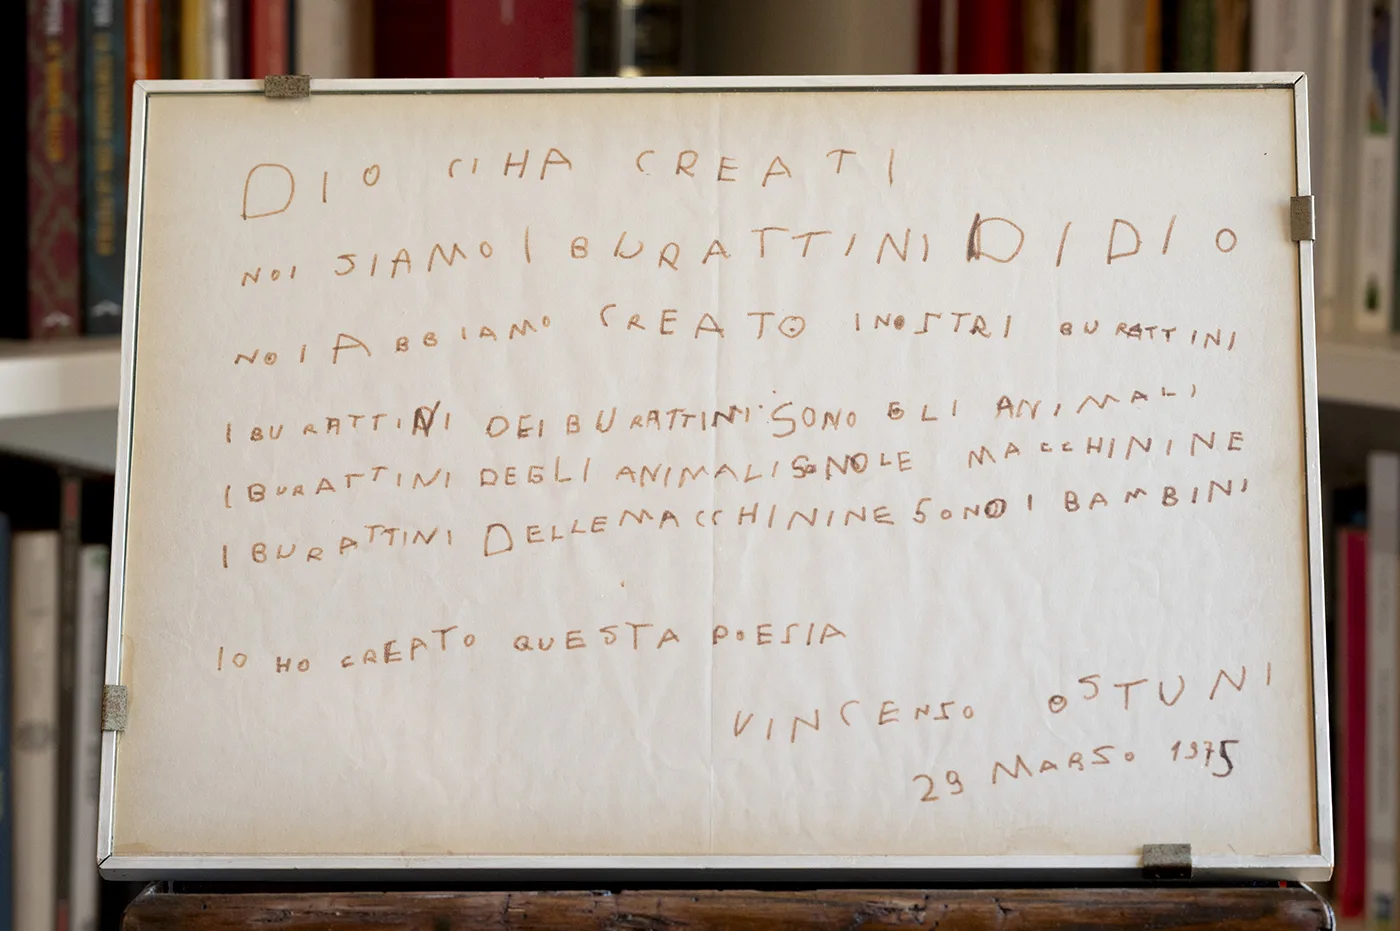 DIO CI HA CREATI
NOI SIAMO I BURATTINI DI DIO
NOI ABBIAMO CREATO I NOSTRI BURATTINI
I BURATTINI DEI BURATTINI SONO GLI ANIMALI
I BURATTINI DEGLI ANIMALI SONO LE MACCHININE
I BURATTINI DELLE MACCHININE SONO I BAMBINI
IO HO CREATO QUESTA POESIA
VINCENSO OSTUNI
29 MARSO 1975